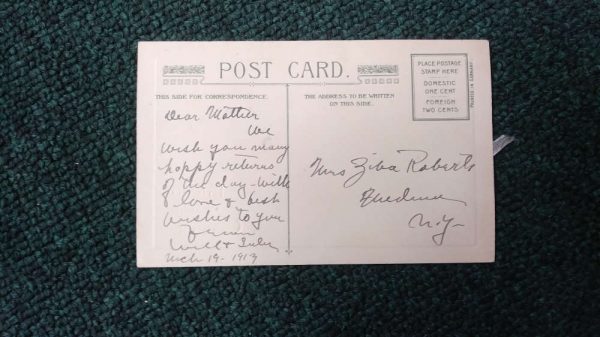 POST CARD.
THIS SIDE FOR CORRESPONDENCE.
THE ADDRESS TO BE WRITTEN
ON THIS SIDE.
PLACE POSTAGE
STAMP HERE
DOMESTIC
ONE CENT
FOREIGN
TWO CENTS
PRINTED IN GERMANY.
Dear Mother
We
wish you many
happy returns
of the day - With
love & best
wishes to you
Will &
Mch 19 - 1919
Mrs Ziba Roberts
N.Y-